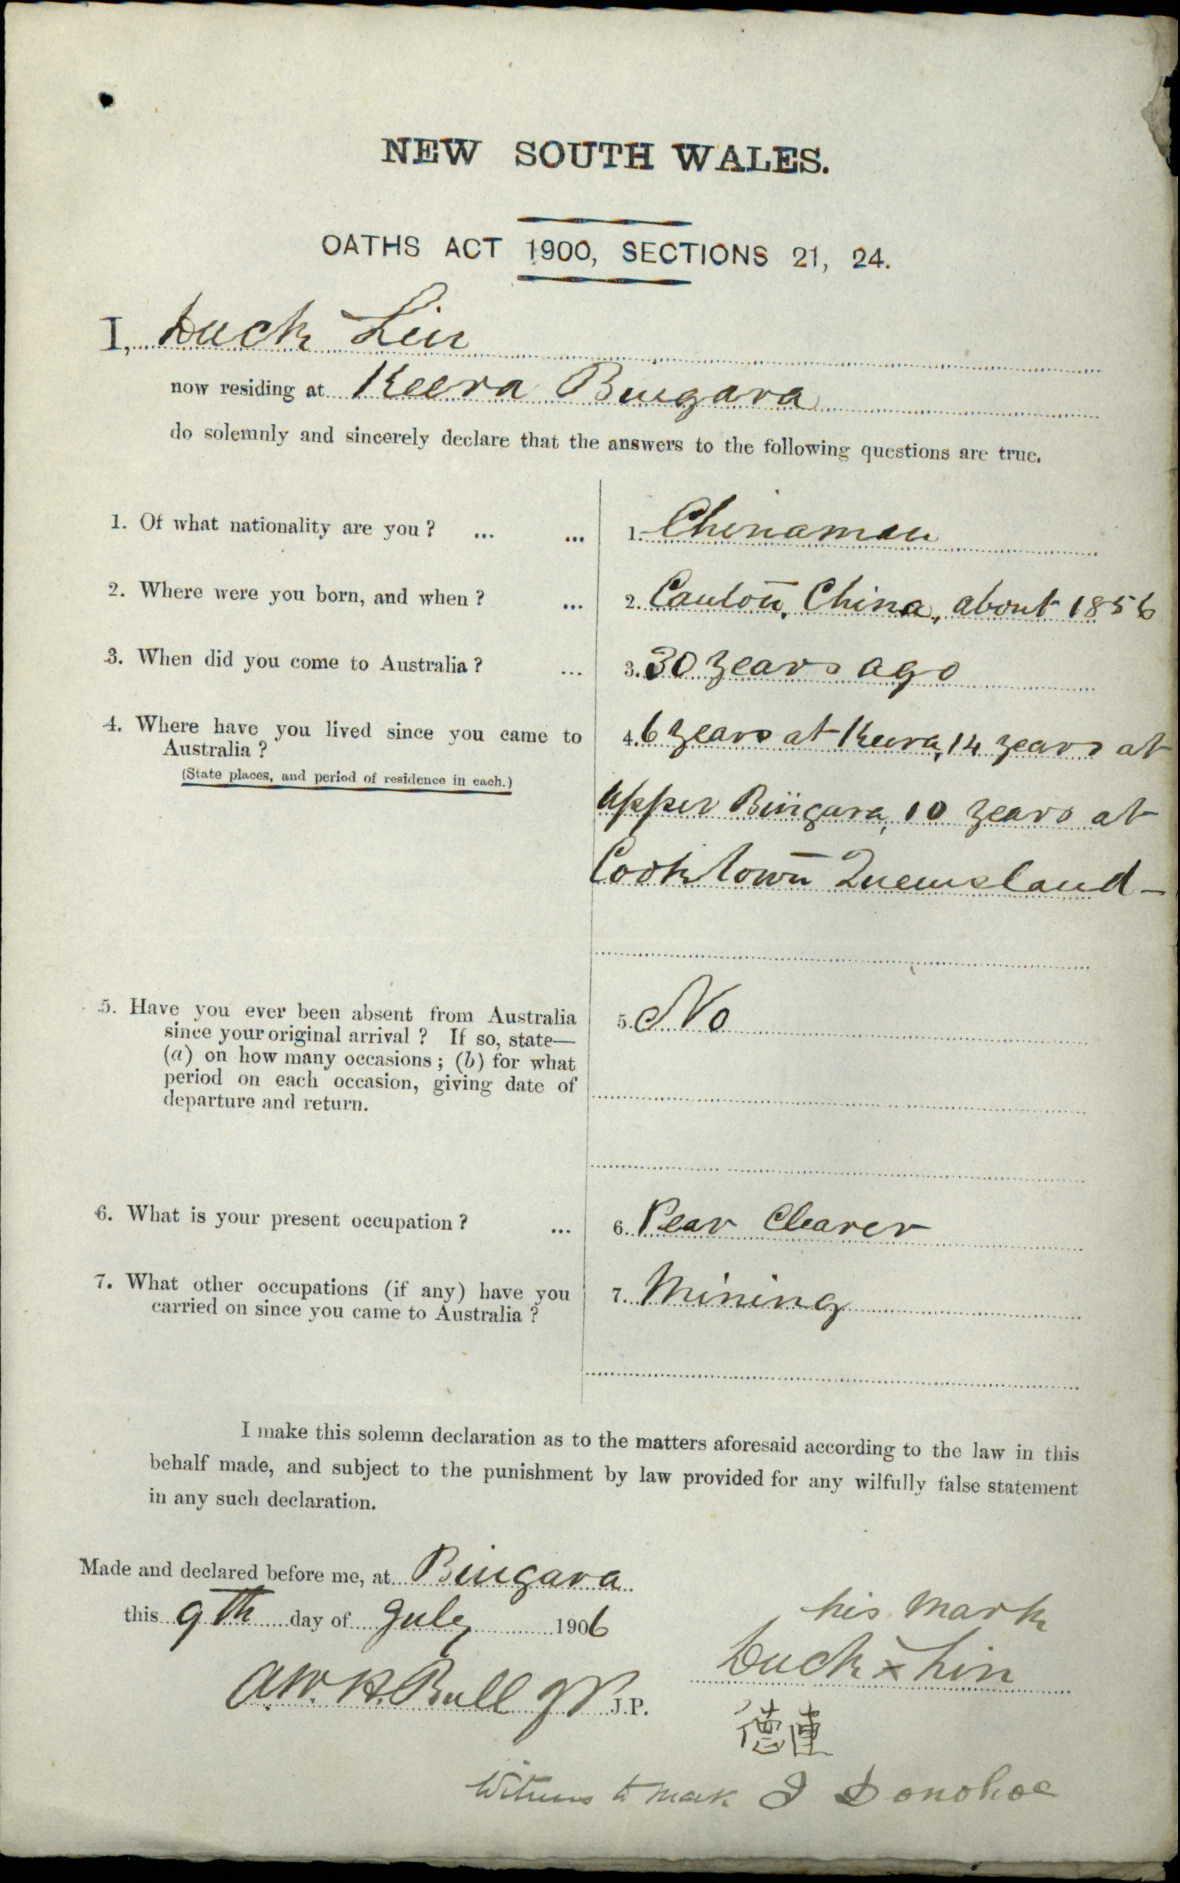 NEW SOUTH WALES.
OATHS ACT 1900, SECTIONS 21, 24.
I, Duck Lin
now residing at Keera Bingara
do solemnly and sincerely declare that the answers to the following questions are true.
1. Of what nationality are you ? ... ... 1. Chinaman
2. Where were you born, and when ? ... 2. Canton, China, about 1856
3. When did you come to Australia ? ... 3. 30 years ago
4. Where have you lived since you came to 4. 6 years at Keera, 14 years at
Australia ?
(State places, and period of residence in each.)
Upper Bingara, 10 years at
Cooktown Queensland –
5. Have you ever been absent from Australia 5. No
since your original arrival ? If so, state—
(a) on how many occasions ; (b) for what
period on each occasion, giving date of
departure and return.
6. What is your present occupation ? ... 6. Pear Clearer
7. What other occupations (if any) have you 7. Mining
carried on since you came to Australia ?
I make this solemn declaration as to the matters aforesaid according to the law in this
behalf made, and subject to the punishment by law provided for any wilfully false statement
in any such declaration.
Made and declared before me, at Bingara
this 9th day of July 1906
his mark
Duck x Lin
A.W.H. Bull JP J.P.
德連
Witness to mark J Donohoe